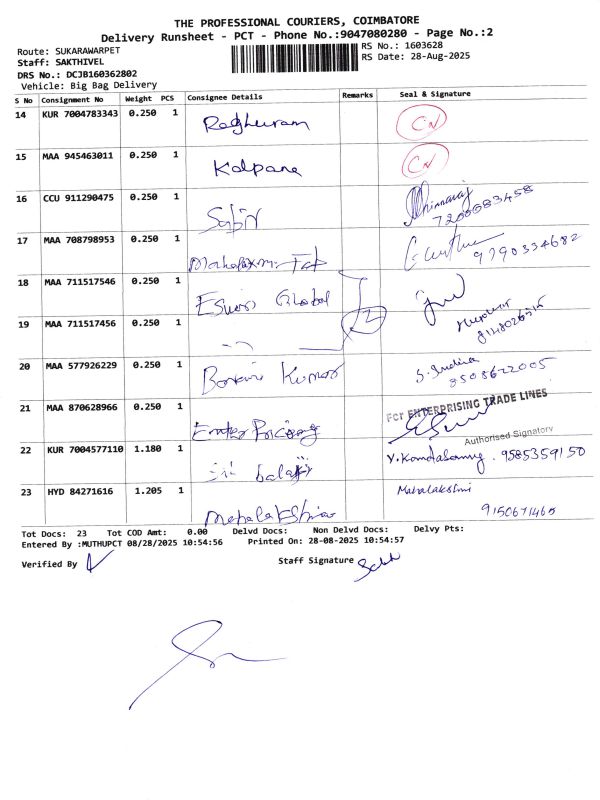 THE PROFESSIONAL COURIERS, COIMBATORE
Delivery Runsheet - PCT - Phone No.:9047080280 - Page No.:2
Route: SUKARAWARPET
RS No.: 1603628
Staff: SAKTHIVEL
RS Date: 28-Aug-2025
DRS No.: DCJB160362802
Vehicle: Big Bag Delivery
S No Consignment No Weight PCS Consignee Details Remarks Seal & Signature
14 KUR 7004783343 0.250 1 Raghuram CN
15 MAA 945463011 0.250 1 Kalpana CN
16 CCU 911290475 0.250 1 7200583458
17 MAA 708798953 0.250 1 9790334682
18 MAA 711517546 0.250 1 Global
19 MAA 711517456 0.250 1
20 MAA 577926229 0.250 1 Kumar S. Indira
21 MAA 870628966 0.250 1 For ENTERPRISING TRADE LINES
Authorised Signatory
22 KUR 7004577110 1.180 1 Sri balaji V. Kandasamy. 9585359150
23 HYD 84271616 1.205 1 Mahalakshmi
9150671465
Tot Docs: 23 Tot COD Amt: 0.00 Delvd Docs: Non Delvd Docs: Delvy Pts:
Entered By :MUTHUPCT 08/28/2025 10:54:56 Printed On: 28-08-2025 10:54:57
Verified By Staff Signature